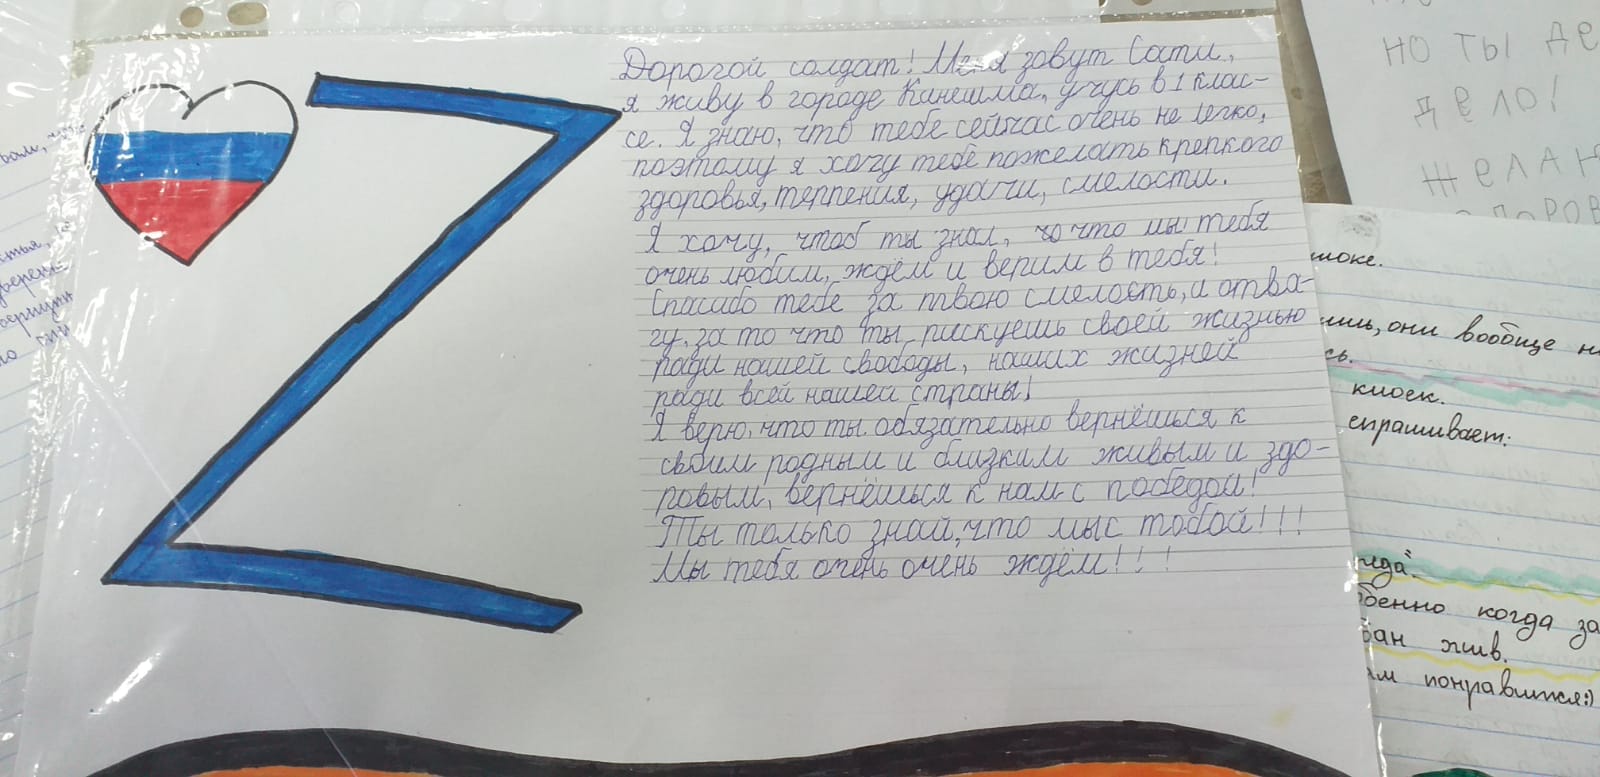 Дорогой солдат! Меня зовут Сати,
я живу в городе Канешма, учусь в 1 клас-
се. Я знаю, что тебе сейчас очень не легко,
поэтому я хочу тебе пожелать крепкого
здоровья, терпения, удачи, смелости.
Я хочу, чтоб ты знал, чо что мы тебя
очень любим, ждём и верим в тебя!
Спасибо тебе за твою смелость, и отва-
гу, за то что ты рискуешь своей жизнью
ради нашей свободы, наших жизней
ради всей нашей страны!
Я верю, что ты обязательно вернёшься к
своим родным и близким живым и здо-
ровым, вернёшься к нам с победой!
Ты только знай, что мы с тобой!!!
Мы тебя очень очень ждём!!!
Z
но ты де
дело!
желаю
они вообще н
киоск.
спрашивает:
когда за
жив.
понравится:)